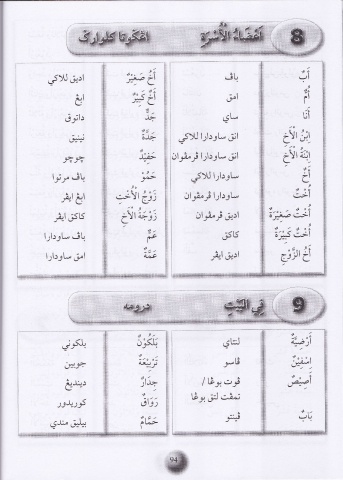 8 أَعْضَاءُ الْأُسْرَةِ اڠݢوتا كلوارݢ
أَبٌ باڤ
أُمٌّ امق
أَنَا ساي
اِبْنُ الْأَخِ انق ساودارا للاكي
اِبْنَةُ الْأَخِ انق ساودارا ڤرمڤوان
أَخٌ ساودارا للاكي
أُخْتٌ ساودارا ڤرمڤوان
أُخْتٌ صَغِيْرَةٌ اديق ڤرمڤوان
أُخْتٌ كَبِيْرَةٌ كاكق
أَخُ الزَّوْجِ اديق ايڤر
أَخٌ صَغِيْرٌ اديق للاكي
أَخٌ كَبِيْرٌ ابڠ
جَدٌّ داتوق
جَدَّةٌ نينيق
حَفِيْدٌ چوچو
حَمُوْ باڤ مرتوا
زَوْجُ الْأُخْتِ ابڠ ايڤر
زَوْجَةُ الْأَخِ كاكق ايڤر
عَمٌّ باڤ ساودارا
عَمَّةٌ امق ساودارا
9 فِي الْبَيْتِ درومه
أَرْضِيَّةٌ لنتاي
إِسْفِيْنٌ ڤاسو
أَصِيْصٌ ڤوت بوڠا /
تمڤت لتق بوڠا
بَابٌ ڤينتو
بَلْكُوْنٌ بلكوني
تَرْبِيْعَةٌ جوبين
جِدَارٌ دينديڠ
رَوَاقٌ كوريدور
حَمَّامٌ بيليق مندي
94